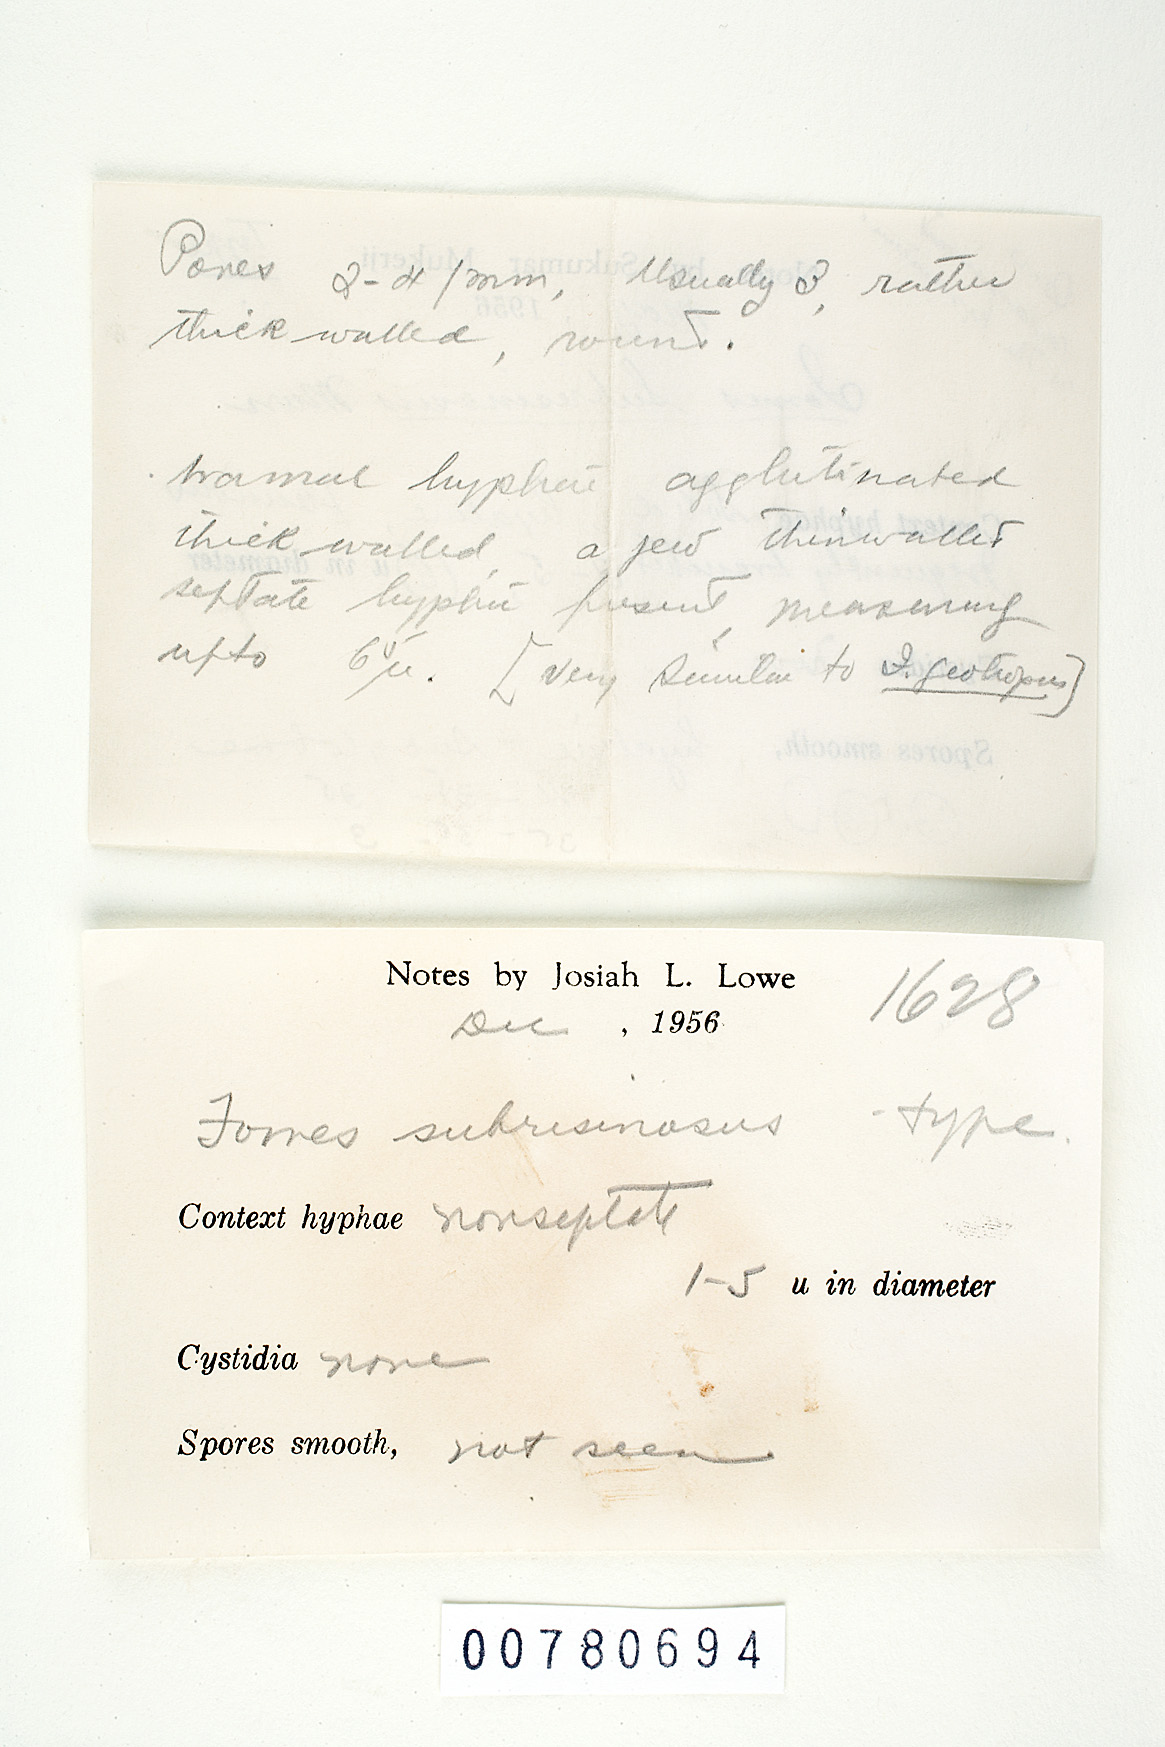 Pores 2-4/mm, Usually 3, rather
thick walled, round.
tramal hyphae agglutinated
thick walled, a few thinwalled
septate hyphae present, measuring
upto 6µ. [very similar to F. geotropus]
Notes by Josiah L. Lowe
1628
Dec , 1956
Fomes subresinosus - type.
Context hyphae nonseptate
1-5 u in diameter
Cystidia none
Spores smooth, not seen
00780694